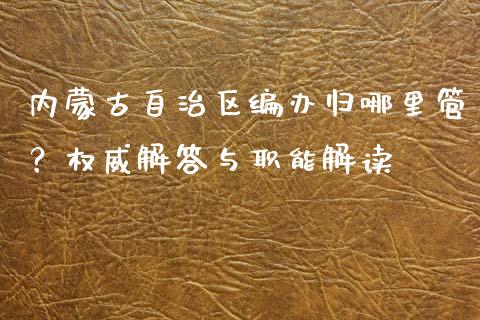 内蒙古自治区编办归哪里管
？权威解答与职能解读